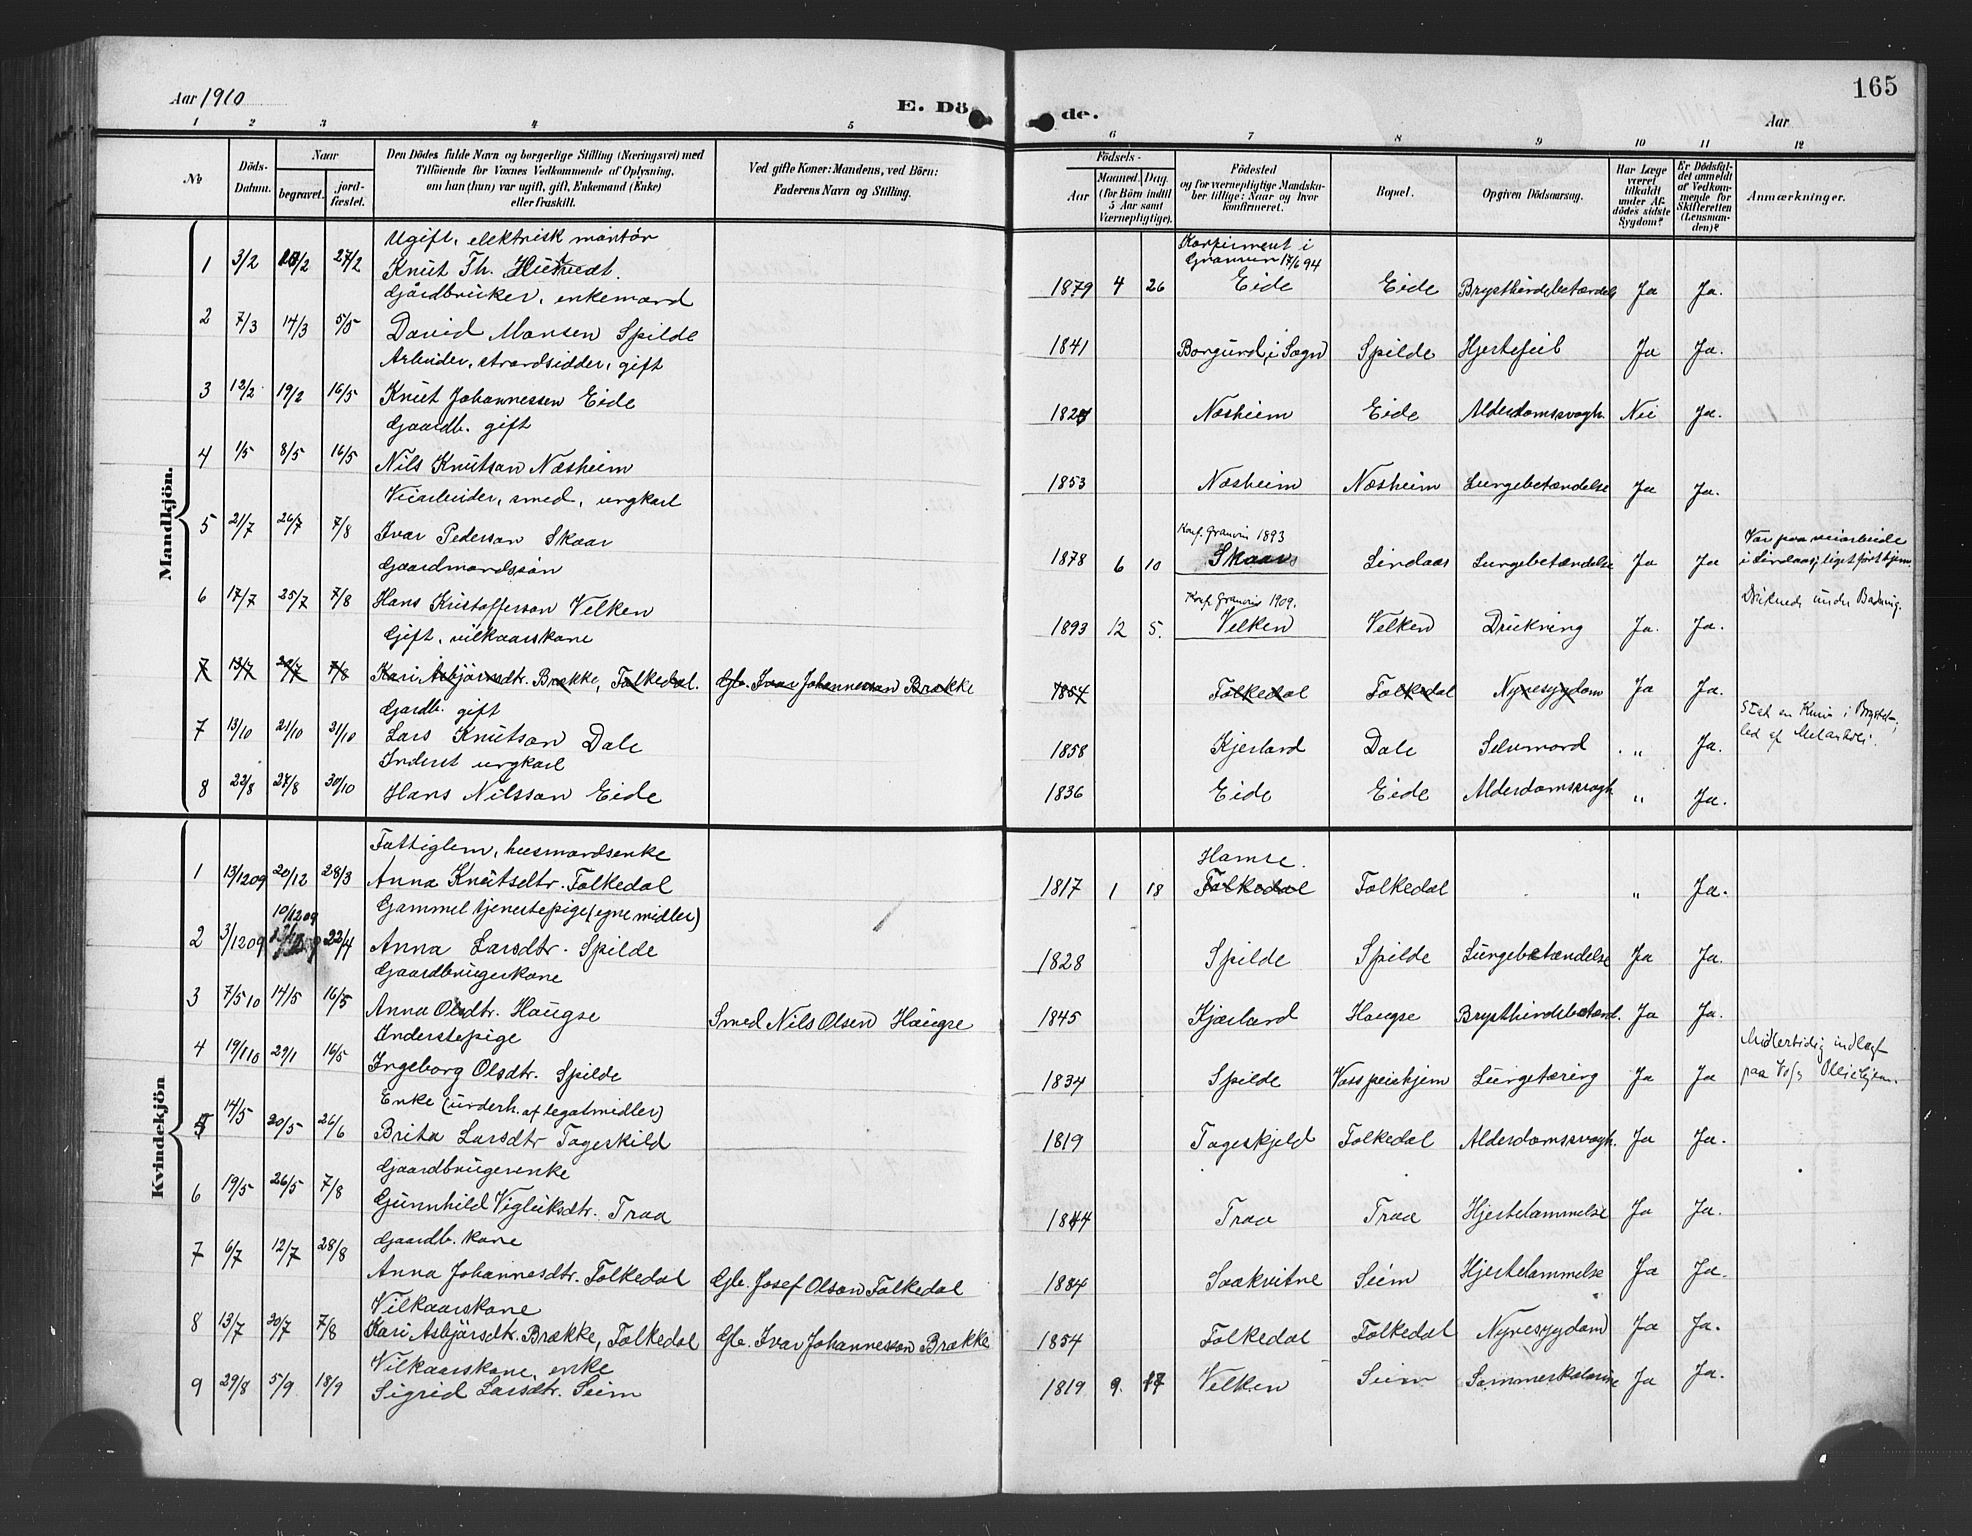 Aar 1910
E. Dö
de.
165
Aar
1 2 3 4 5 6 7 8 9 10 11 12
№
Döds-Datum.
Naar
begravet.
jord-fæstet.
Den Dödes fulde Navn og borgerlige Stilling (Næringsvei) med
Tilföiende for Voxnes Vedkommende af Oplysning,
om han (hun) var ugift, gift, Enkemand (Enke)
eller fraskilt.
Ved gifte Koner: Mandens, ved Börn:
Faderens Navn og Stilling.
Födsels-
Aar
Maaned. Dag.
(for Börn indtil
5 Aar samt
Værnepligtige).
Födested
og for værnepligtige Mandska-
ber tillige: Naar og hvor
konfirmeret.
Bopæl.
Opgiven Dödsaarsag.
Har Læge
været
tilkaldt
under Af-
dödes sidste
Sygdom?
Er Dödsfal-
det anmeldt
af Vedkom-
mende for
Skifteretten
(Lensman-
den)?
Anmærkninger.
Mandkjön.
Ugift, elektrisk montör
Konfirmert i
Granvin 17/6 94
1 3/2 27/2 Knut Th. 1879 4 26 Eide Eide Brysthindebetændels Ja Ja.
Gårdbruker, enkemand
2 7/3 14/3 5/5 David Monsen Spilde 1841 Borgund i Sogn Spilde Hjertefeil Ja Ja.
Arbeider, strandsidder, gift
3 12/2 19/2 16/5 Knut Johannessen Eide Næsheim Eide Alderdomssvagh. Nei Ja.
Gaardb. gift
4 1/5 8/5 16/5 Nils Knutson Næsheim 1853 Næsheim Næsheim Lungebetændelse Ja Ja.
Veiarbeider, smed, ungkarl
Konf. Granvin 1893
Var paa veiarbeide
5 21/7 26/7 7/8 Ivar Pederson Skaar 1878 6 10 Skaar Lindaas Lungebetændelse Ja Ja i Lindaas; liget fört hjem.
Gaardmandssön
Konf. Granvin 1909.
Druknede under Badning.
6 17/7 25/7 7/8 Hans Kristofferson Velken 1893 12 5. Velken Velken Drukning Ja. Ja.
Gift, vilkaarskone
7 13/7 20/7 7/8 Kari Asbjörnsdtr. Brække, Folkedal. Gb. Ivar Johannesson Brække 1854 Folkedal Folkedal Nyresygdom Ja Ja.
Gardb. gift
7 13/10 21/10 31/10 Lars Knutson Dale 1858 Kjerland Dale Selvmord „ Ja. Stak en Kniv i Brystet,
led af
Inderst ungkarl
8 22/8 27/8 30/10 Hans Nilsson Eide 1836 Eide Eide Alderdomssvagh. „ Ja.
Kvindekjön
Fattiglem, husmandsenke
Hamre.
1 13/12 09 20/12 28/3 Anna Knutsdtr. Folkedal 1817 1 18 Folkedal Folkedal „ Ja.
Gammel tjenestepige (egne midler)
10/12 09
2 3/12 09 22/4 Anna Larsdtr. Spilde 1828 Spilde Spilde Lungebetændelse Ja Ja.
Gaardbrugerkone
3 7/5 10 14/5 16/5 Anna Olsdtr. Haugse Smed Nils Olsen Haugse 1845 Kjærland Haugse Brysthindebetænd. Ja Ja.
Inderstepige
Midlertidig indlagt
4 19/1 10 29/1 16/5 Ingeborg Olsdtr. Spilde 1834 Spilde Voss pleiehjem Lungetæring Ja Ja paa Voss Pleiehjem.
Enke (underh. af legatmidler)
5 14/5 20/5 26/6 Brita Larsdtr Tageskild 1819 Tageskjeld Folkedal Alderdomssvagh. Ja Ja.
Gaardbrugerenke
6 19/5 26/5 7/8 Gunnhild Vigleiksdtr. Traa 1844 Traa Traa Hjertelammelse Ja Ja.
Gaardb. kone
7 6/7 12/7 28/8 Anna Johannesdtr. Folkedal Gb. Josef Olson Folkedal 1884 Saakvitne Seim Hjertelammelse Ja Ja.
Vilkaarskone
8 13/7 20/7 7/8 Kari Asbjörsdtr. Brække, Folkedal Gb. Ivar Johannesson Brække 1854 Folkedal Folkedal Nyresygdom Ja Ja.
Vilkaarskone, enke
9 29/8 5/9 18/9 Sigrid Larsdtr. Seim 1819 9. 17 Velken Seim Sommerkolerine Ja Ja.